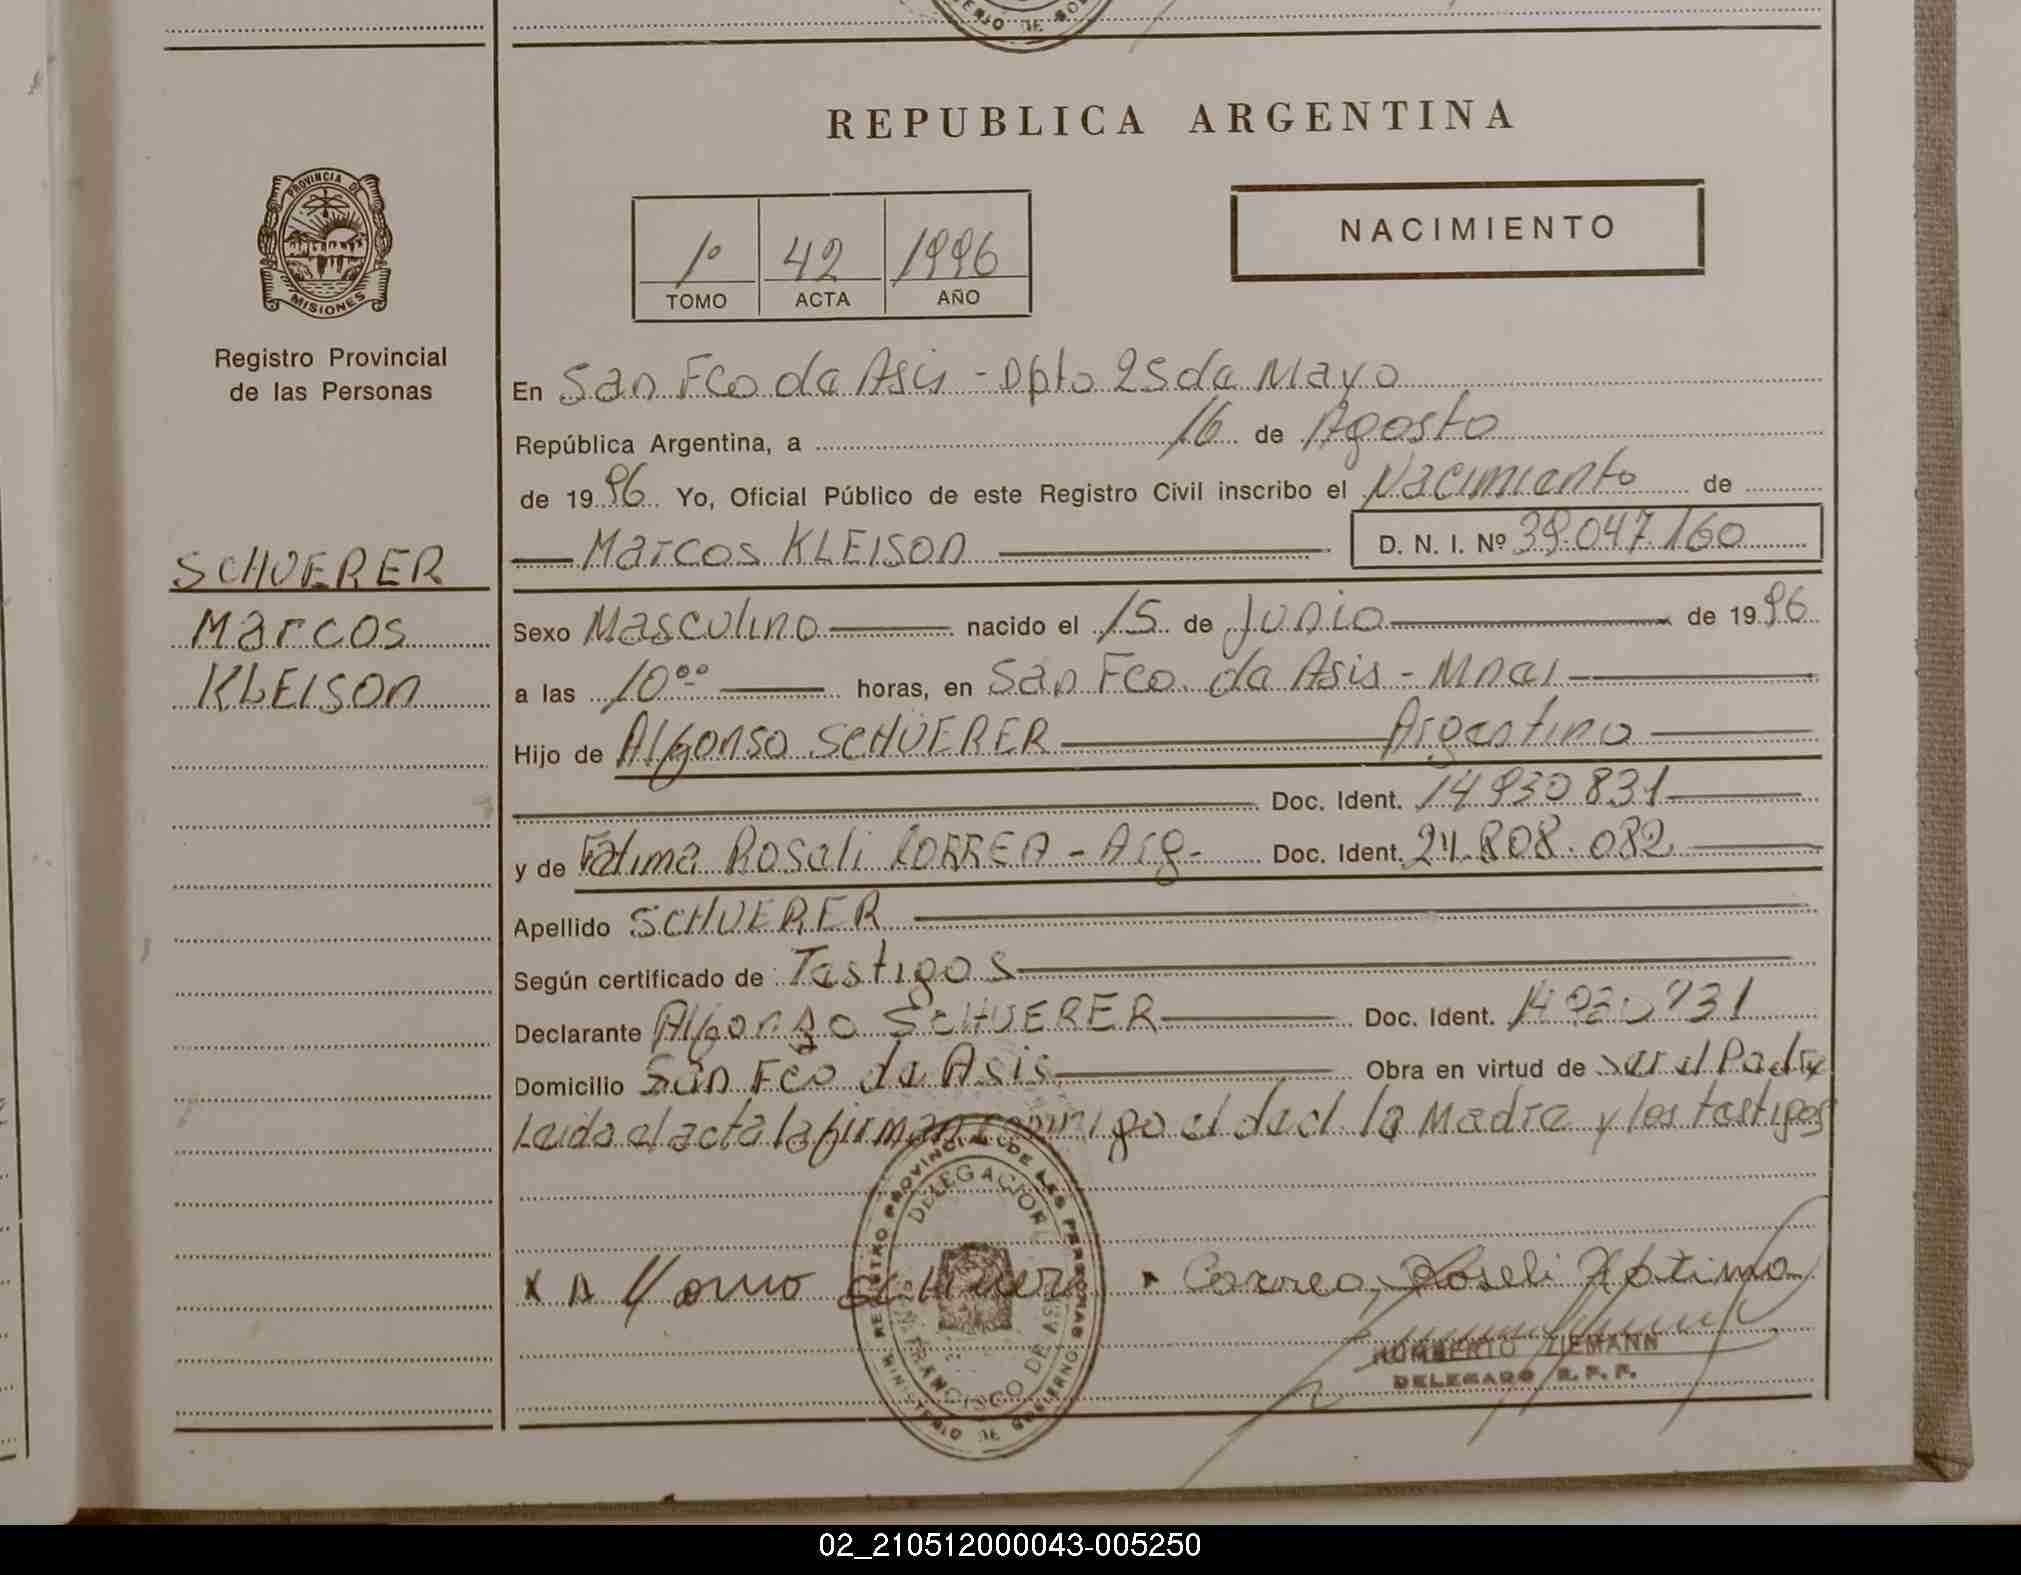 REPUBLICA ARGENTINA
PROVINCIA DE
MISIONES
Registro Provincial
de las Personas
1º 42 1996
TOMO ACTA AÑO
NACIMIENTO
SCHUERER
Marcos
KLEISON
En San Fco de Asis - Dpto 25 de Mayo
República Argentina, a 16 de Agosto
de 1996 Yo, Oficial Público de este Registro Civil inscribo el Nacimiento de
Marcos KLEISON D. N. I. Nº 39.047.160
Sexo Masculino nacido el 15 de Junio de 1996
a las 10⁰⁰ horas, en San Fco. de Asis - Mnes
Hijo de Alfonso SCHUERER Argentino
Doc. Ident. 14 930 831
y de Fatima Rosali CORREA - Arg- Doc. Ident. 24.808.082
Apellido SCHUERER
Según certificado de Testigos
Declarante Alfonso SCHUERER Doc. Ident.
Domicilio San Fco de Asis Obra en virtud de ser el Padre
Leida el acta la firman conmigo el decl. la Madre y los testigos
REGISTRO PROVINCIAL DE LAS PERSONAS
DELEGACION
FRANCISCO DE ASIS
MINISTERIO DE GOBIERNO
Correa, Roseli
HUMBERTO ZIEMANN
DELEGADO R.P.P.
02_210512000043-005250